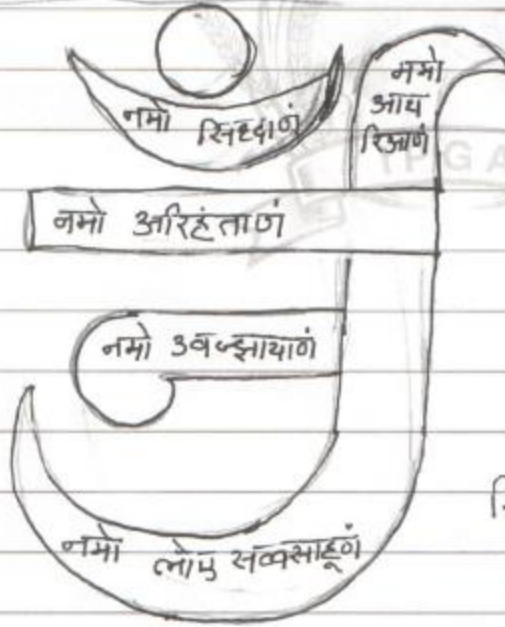 नमो सिध्दाणं
नमो
आय
रिआणं
नमो अरिहंताणं
नमो उवज्झायाणं
नमो लोए सव्वसाहूणं